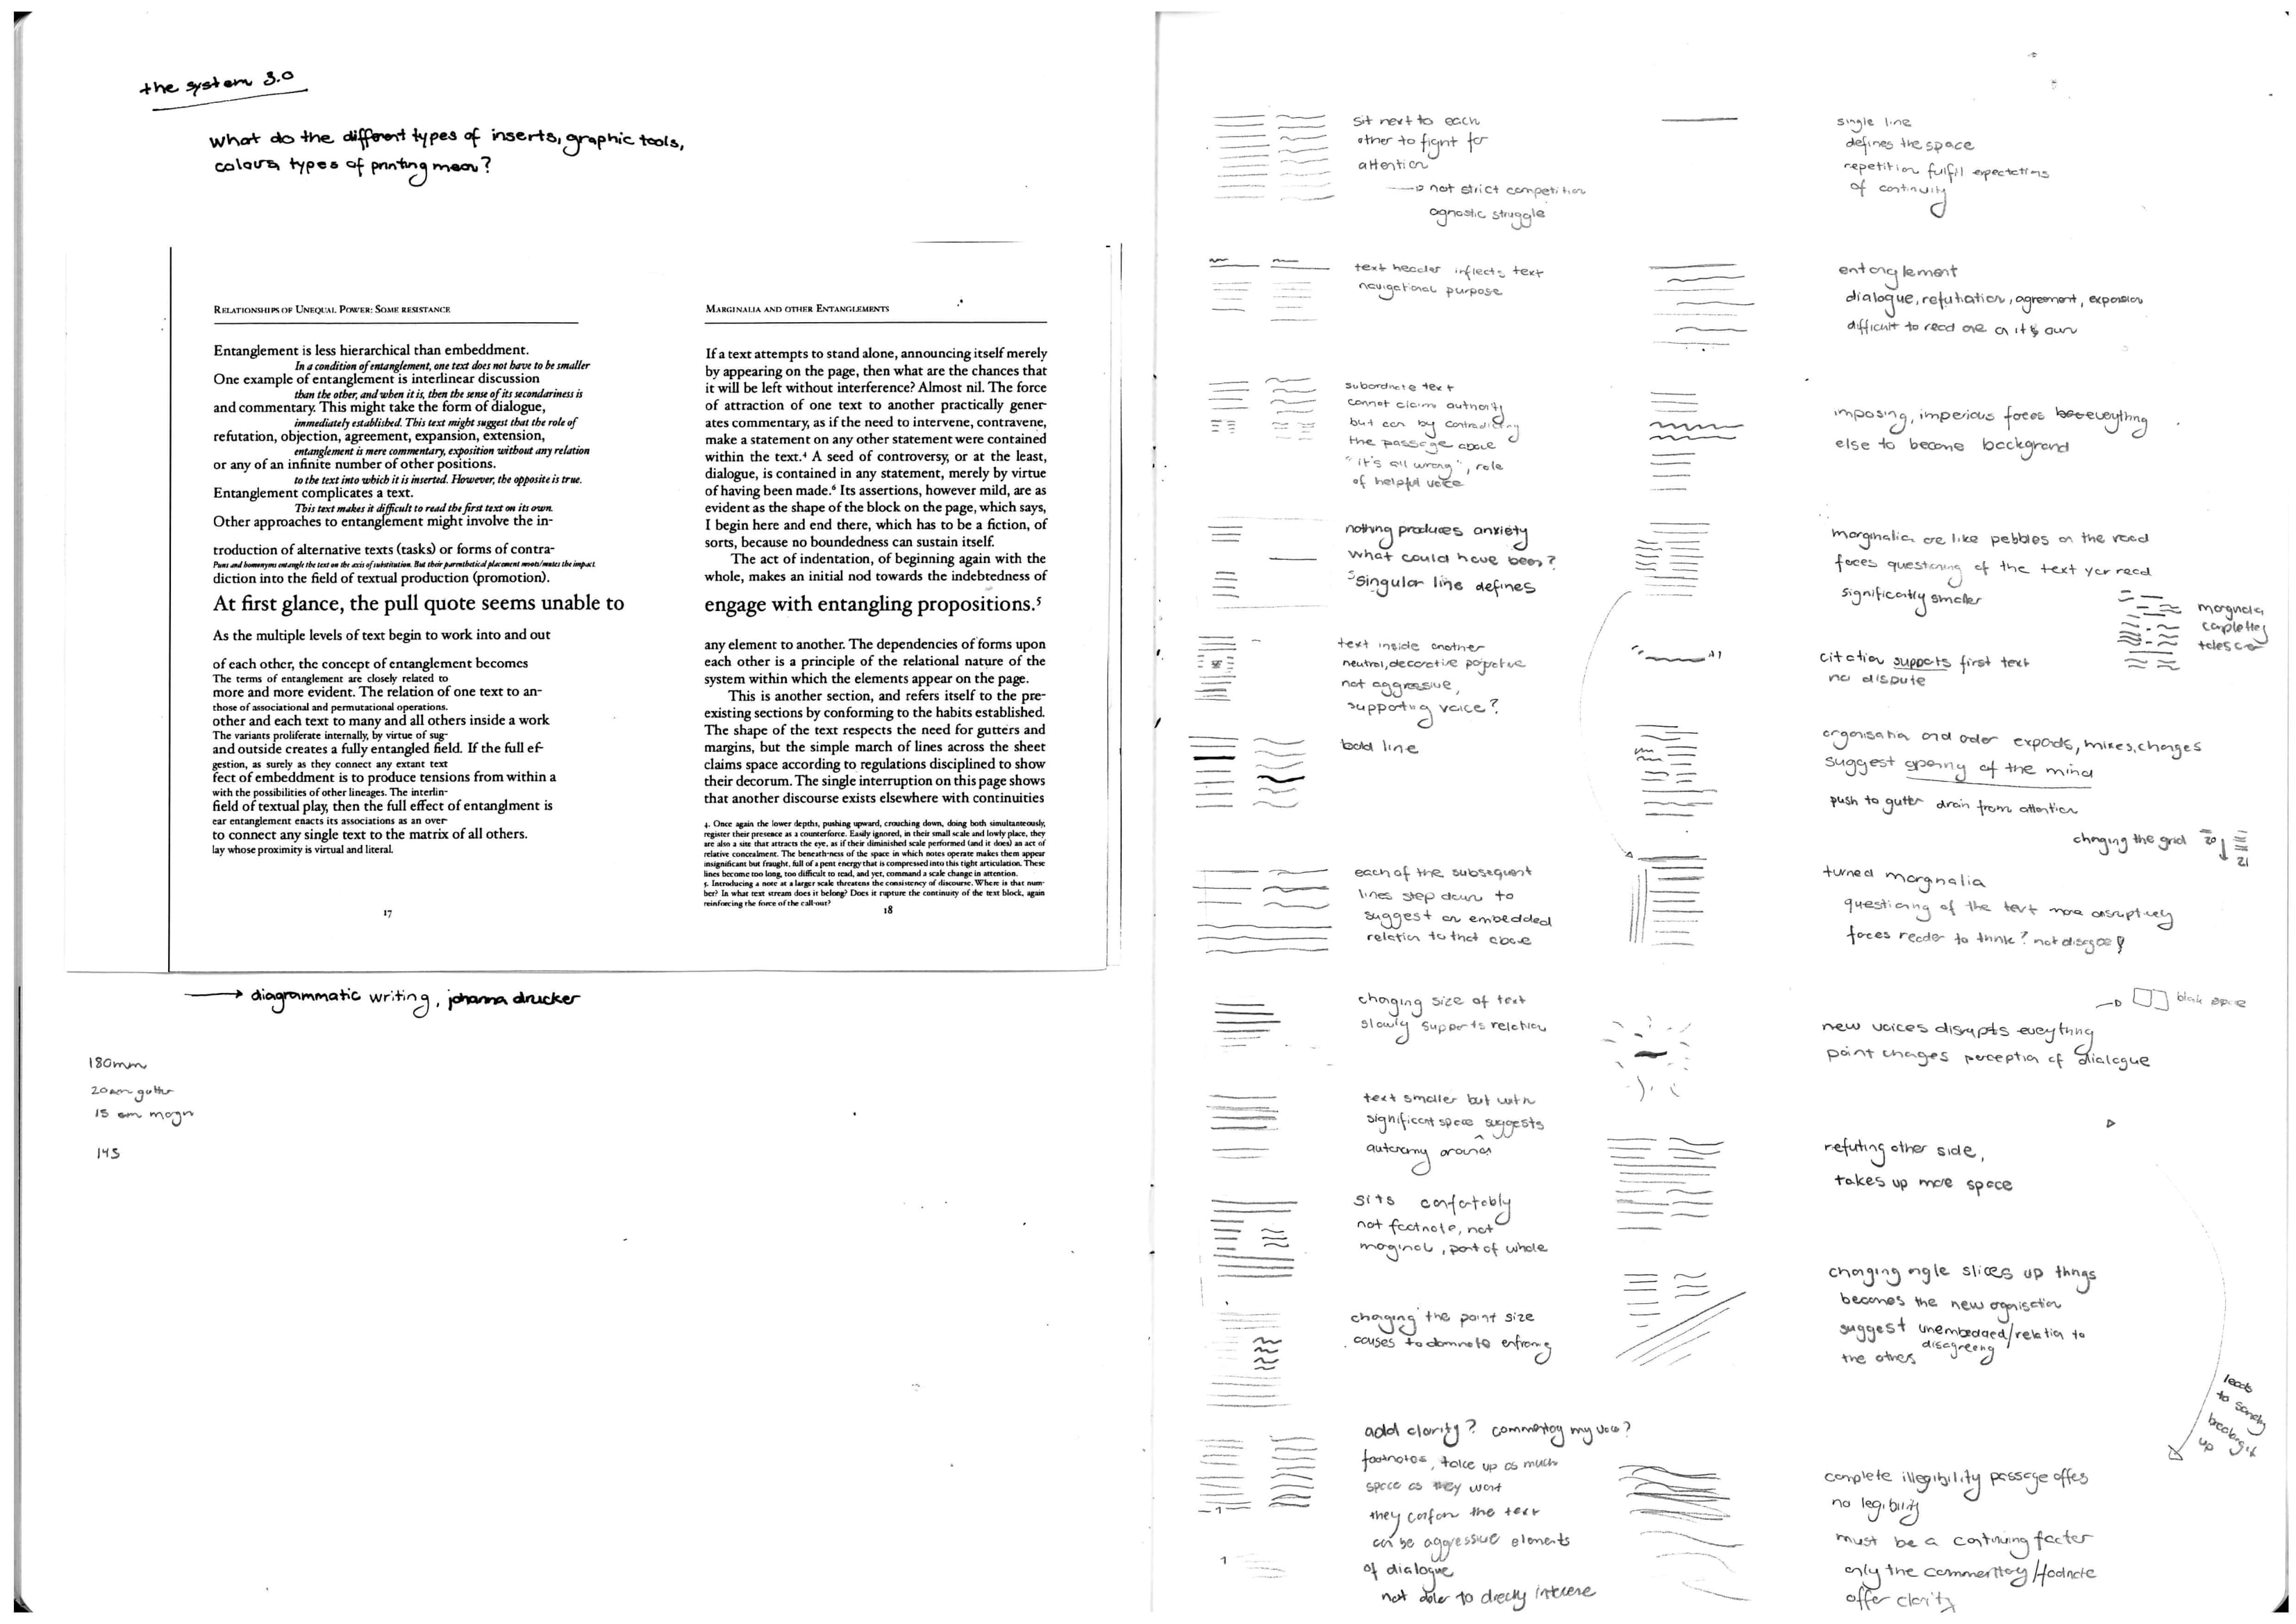 the system 3.0
what do the different types of inserts, graphic tools,
colours, types of printing mean?
RELATIONSHIPS OF UNEQUAL POWER: SOME RESISTANCE
Entanglement is less hierarchical than embeddment.
In a condition of entanglement, one text does not have to be smaller
One example of entanglement is interlinear discussion
than the other, and when it is, then the sense of its secondariness is
and commentary. This might take the form of dialogue,
immediately established. This text might suggest that the role of
refutation, objection, agreement, expansion, extension,
entanglement is mere commentary, exposition without any relation
or any of an infinite number of other positions.
to the text into which it is inserted. However, the opposite is true.
Entanglement complicates a text.
This text makes it difficult to read the first text on its own.
Other approaches to entanglement might involve the in-
troduction of alternative texts (tasks) or forms of contra-
Puns and homonyms entangle the text on the axis of substitution. But their parenthetical placement moots/mutes the impact.
diction into the field of textual production (promotion).
At first glance, the pull quote seems unable to
As the multiple levels of text begin to work into and out
of each other, the concept of entanglement becomes
The terms of entanglement are closely related to
more and more evident. The relation of one text to an-
those of associational and permutational operations.
other and each text to many and all others inside a work
The variants proliferate internally, by virtue of sug-
and outside creates a fully entangled field. If the full ef-
gestion, as surely as they connect any extant text
fect of embeddment is to produce tensions from within a
with the possibilities of other lineages. The interlin-
field of textual play, then the full effect of entanglment is
ear entanglement enacts its associations as an over-
to connect any single text to the matrix of all others.
lay whose proximity is virtual and literal.
17
MARGINALIA AND OTHER ENTANGLEMENTS
If a text attempts to stand alone, announcing itself merely
by appearing on the page, then what are the chances that
it will be left without interference? Almost nil. The force
of attraction of one text to another practically gener-
ates commentary, as if the need to intervene, contravene,
make a statement on any other statement were contained
within the text.⁴ A seed of controversy, or at the least,
dialogue, is contained in any statement, merely by virtue
of having been made.⁶ Its assertions, however mild, are as
evident as the shape of the block on the page, which says,
I begin here and end there, which has to be a fiction, of
sorts, because no boundedness can sustain itself.
The act of indentation, of beginning again with the
whole, makes an initial nod towards the indebtedness of
engage with entangling propositions.⁵
any element to another. The dependencies of forms upon
each other is a principle of the relational nature of the
system within which the elements appear on the page.
This is another section, and refers itself to the pre-
existing sections by conforming to the habits established.
The shape of the text respects the need for gutters and
margins, but the simple march of lines across the sheet
claims space according to regulations disciplined to show
their decorum. The single interruption on this page shows
that another discourse exists elsewhere with continuities
4. Once again the lower depths, pushing upward, crouching down, doing both simultanteously,
register their presence as a counterforce. Easily ignored, in their small scale and lowly place, they
are also a site that attracts the eye, as if their diminished scale performed (and it does) an act of
relative concealment. The beneath-ness of the space in which notes operate makes them appear
insignificant but fraught, full of a pent energy that is compressed into this tight articulation. These
lines become too long, too difficult to read, and yet, command a scale change in attention.
5. Introducing a note at a larger scale threatens the consistency of discourse. Where is that num-
ber? In what text stream does it belong? Does it rupture the continuity of the text block, again
reinforcing the force of the call-out?
18
→ diagrammatic writing, johanna drucker
180mm
20mm gutter
15 mm margin
145
sit next to each
other to fight for
attention
→ not strict competition
agnostic struggle
text header inflects text
navigational purpose
subordinate text
cannot claim authority
but can by contradicting
the passage above
"it's all wrong", role
of helpful voice
nothing produces anxiety
what could have been?
singular line defines
text inside another
neutral, decorative
not aggressive,
supporting voice?
bold line
each of the subsequent
lines step down to
suggest an embedded
relation to that above
changing size of text
slowly supports relation
text smaller but with
significant space suggests
autonomy around
sits comfortably
not footnote, not
marginal, part of whole
changing the point size
causes to dominate
add clarity? commentary my voice?
footnotes, take up as much
space as they want
they confirm the text
can be aggressive elements
of dialogue
not able to directly intervene
1
1
single line
defines the space
repetition fulfil expectations
of continuity
entanglement
dialogue, refutation, agreement, expansion
difficult to read one on it's own
imposing, imperious forces everything
else to become background
marginalia are like pebbles on the road
forces questioning of the text you read
significantly smaller
marginalia
completely
takes over
citation supports first text
no dispute
organisation and order expands, mixes, changes
suggest opening of the mind
push to gutter drain from attention
changing the grid 20 21
turned marginalia
questioning of the text more disruptively
forces reader to think? not disagree
→ blank space
new voices disrupts everything
point changes perception of dialogue
refuting other side,
takes up more space
changing angle slices up things
becomes the new organisation
suggest unembedded/relation to
disagreeing
the others
leads
to
breaking it
up
complete illegibility passage offers
no legibility
must be a continuing factor
only the commentary/footnote
offer clarity